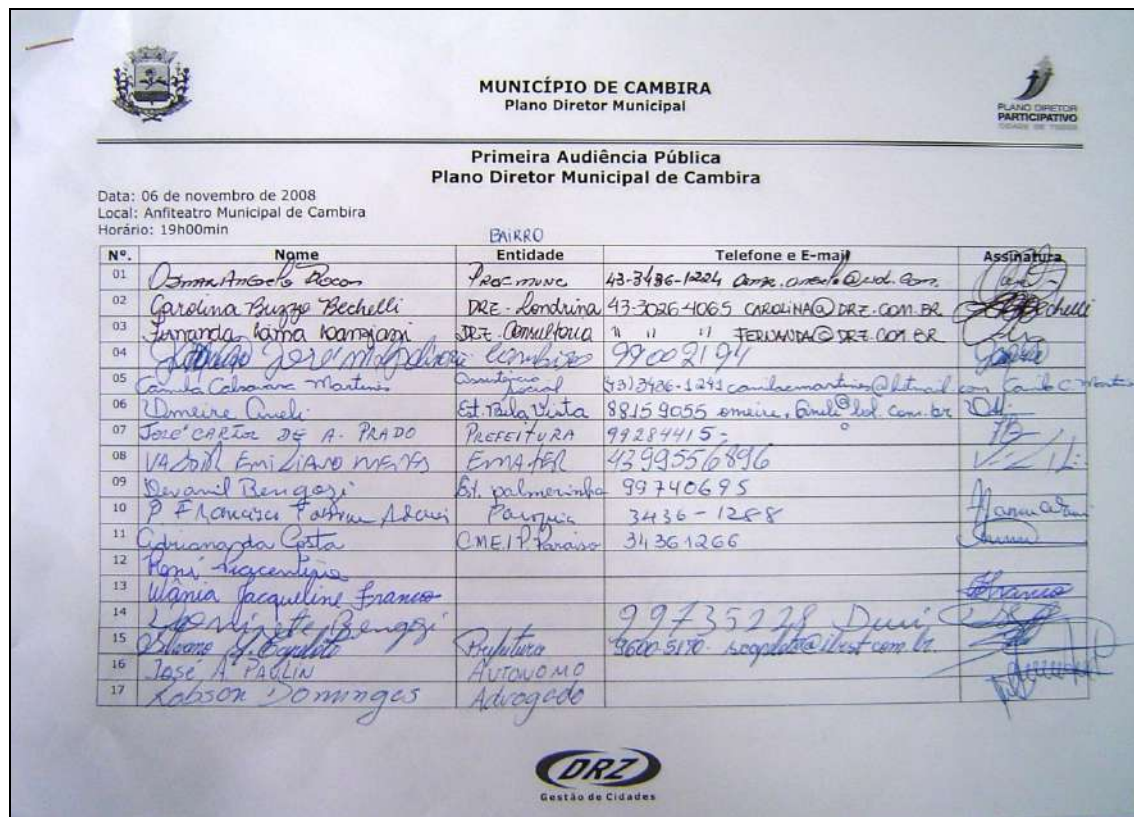 MUNICÍPIO DE CAMBIRA
Plano Diretor Municipal
PLANO DIRETOR
PARTICIPATIVO
CIDADE DE TODOS
Primeira Audiência Pública
Plano Diretor Municipal de Cambira
Data: 06 de novembro de 2008
Local: Anfiteatro Municipal de Cambira
Horário: 19h00min
BAIRRO
Nº. Nome Entidade Telefone e E-mail Assinatura
01 Osmar Angelo Proc. munc 43-3436-1224
02 Carolina Buzzo Bechelli DRZ - Londrina 43-3026-4065 CAROLINA@DRZ.COM.BR
03 Fernanda DRZ - Consultoria " " " FERNANDA@DRZ.COM.BR
04 José 99002194
05 Camila Calsavara Martins Assistência Social (43)3436-1241 camilacmartins@hotmail.com Camila C Martins
06 Est. Bela Vista 88159055
07 José CARLOS DE A. PRADO PREFEITURA 99284415-
08 EMILIANO EMATER 4399556896
09 Devanil Bengozi Est. palmerinha 99740695
10 P Francisco Paroquia 3436-1288
11 Adriana da Costa CMEI P. Paraiso 34361266
12 Roni
13 Wânia Jacqueline Franco Franco
14 Bengozi 99735228
15 Prefeitura 9600-5170-
16 José A. PAULIN AUTONOMO
17 Robson Domingos Advogado
DRZ
Gestão de Cidades